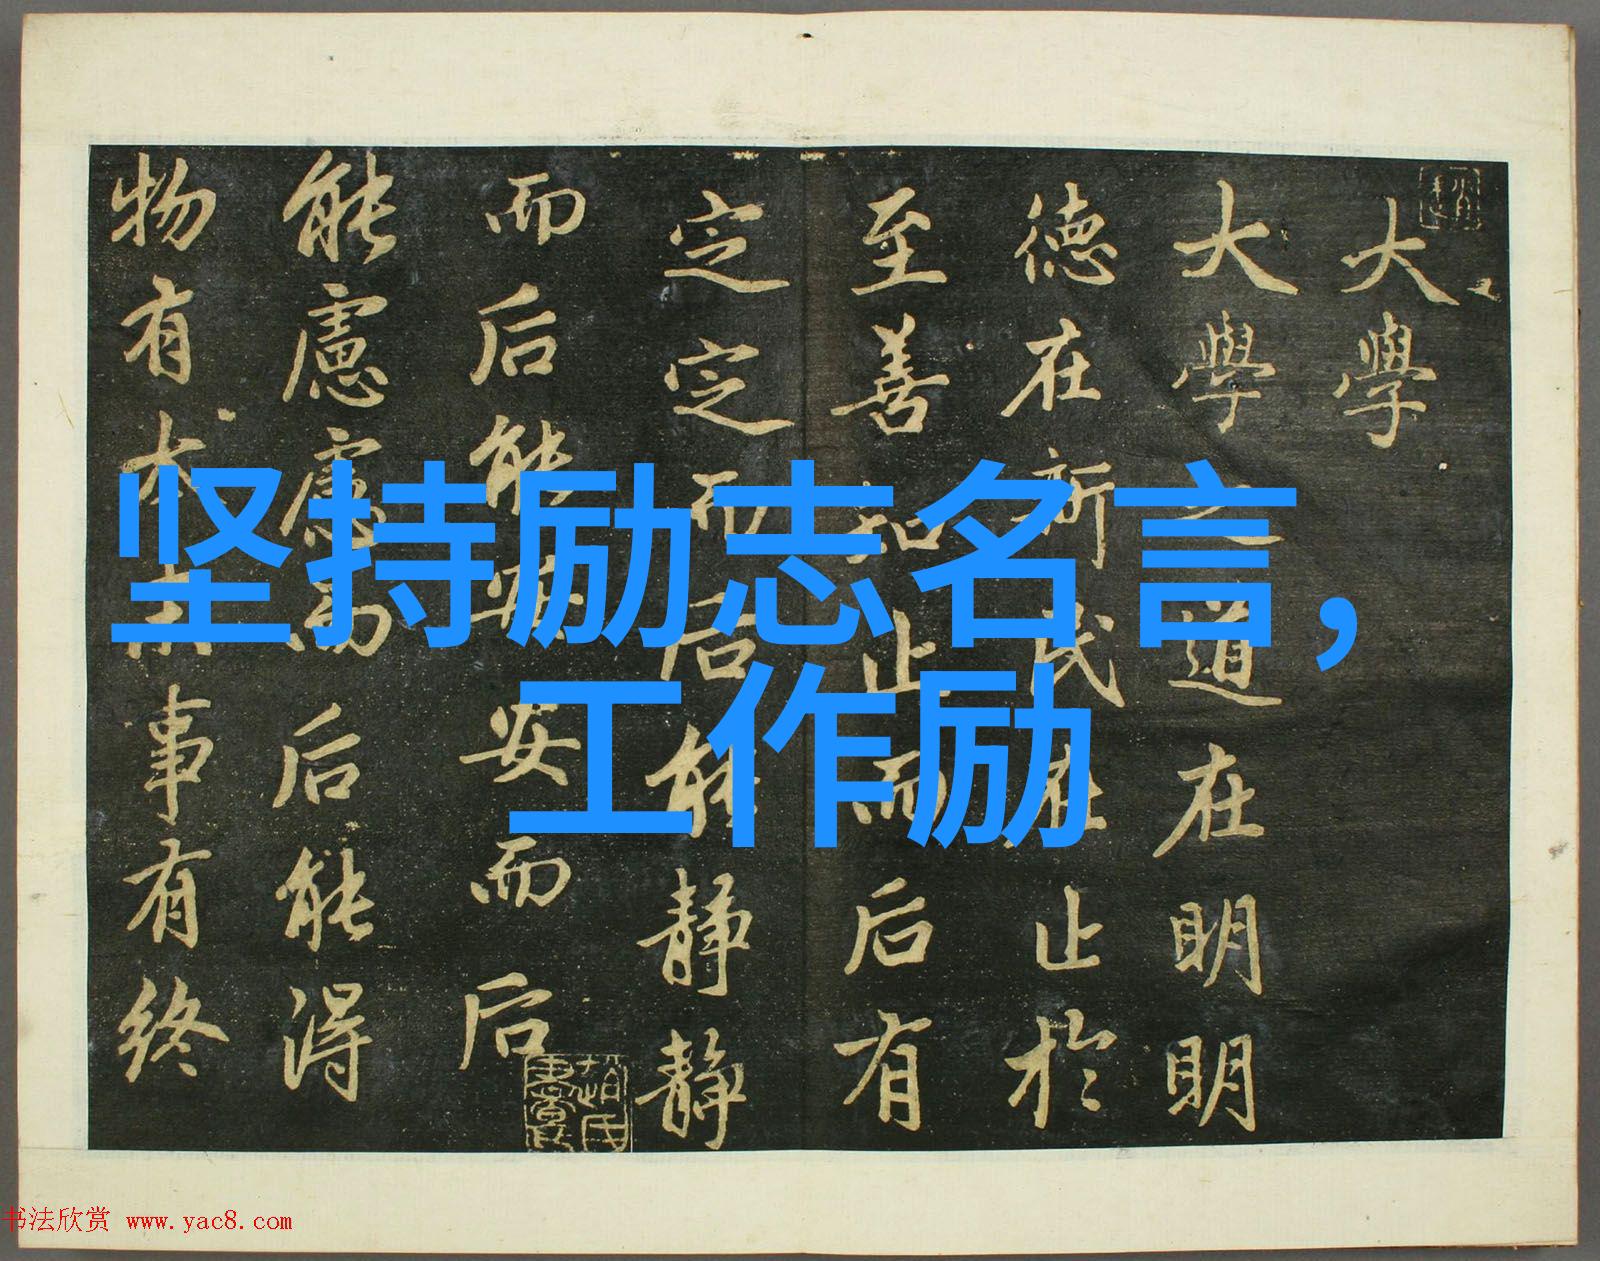 大學
大學之道在明明
德在新民在止於
至善知止而后有
定定而后能静静
而后能安安而后
能慮慮而后能得
物有本末事有終
坚持励志名言，
工作励
书法欣赏 www.yac8.com